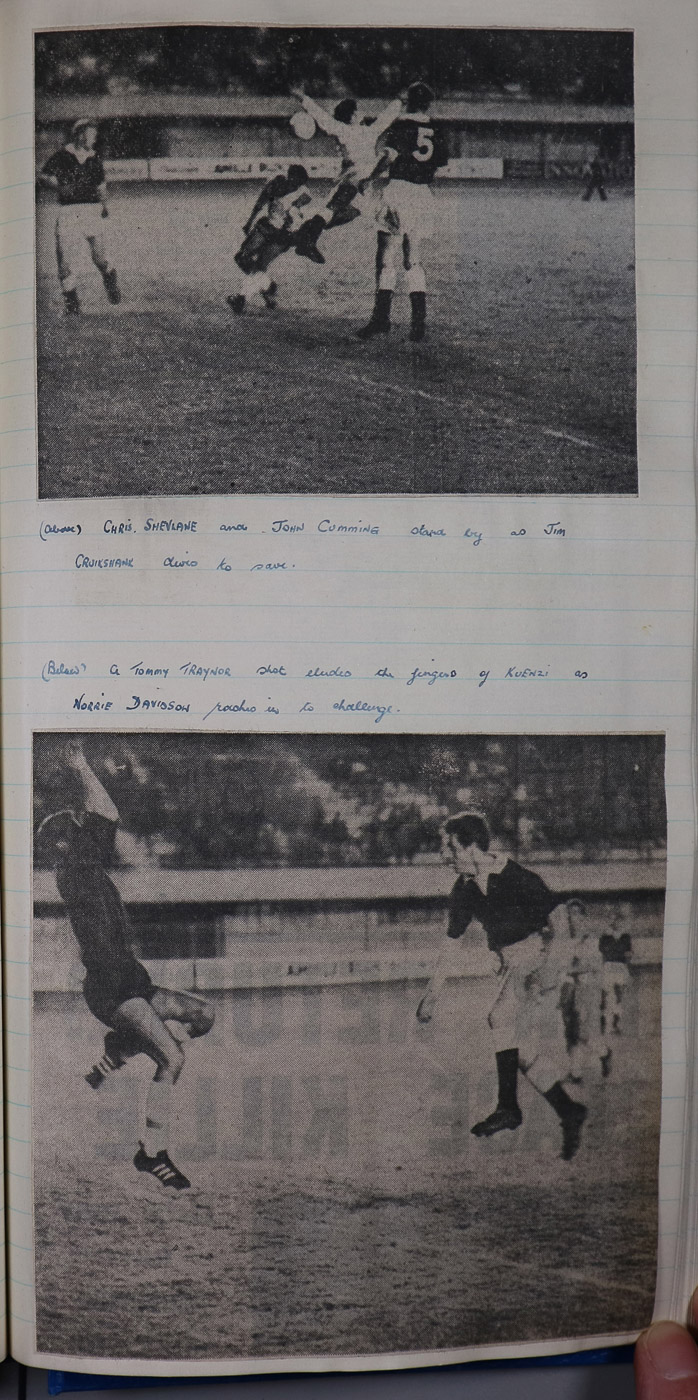 5
(Above) CHRIS. SHEVLANE and JOHN CUMMING stand by as JIM
CRUIKSHANK dives to save.
(Below) A TOMMY TRAYNOR shot eludes the fingers of KUENZI as
NORRIE DAVIDSON rushes in to challenge.